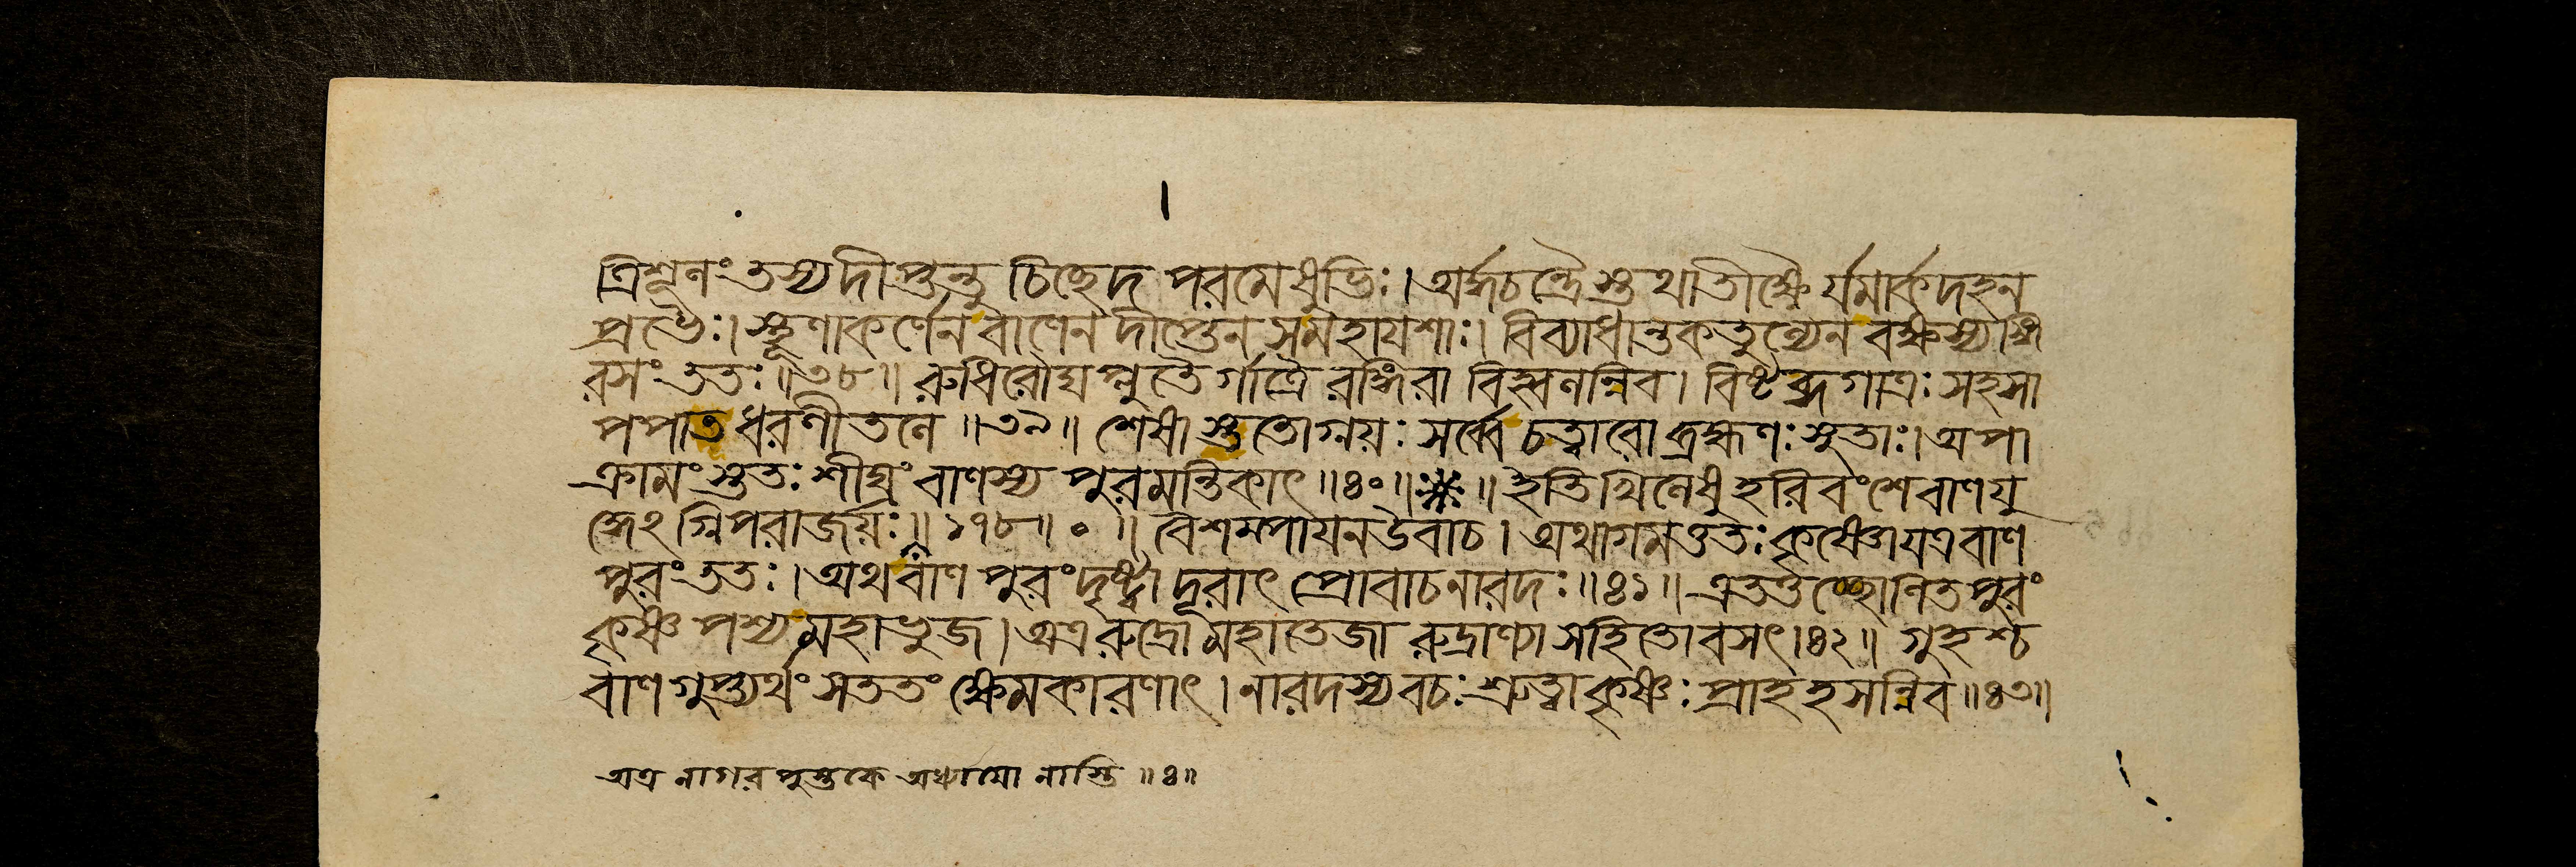 ত্রিশূলং তস্য দীপ্তন্তু চিচ্ছেদ পরমেষুভিঃ। অর্দ্ধচন্দ্রৈস্তথাতীক্ষ্ণৈর্যমার্কদহন
প্রভৈঃ। স্থূণাকর্ণেন বাণেন দীপ্তেন সমহাযশাঃ। বিব্যাধান্তকতুল্যেন বক্ষস্যঙ্গি
রসং ততঃ॥৩৮॥ রুধিরৌঘপ্লুতৈর্গাত্রৈরঙ্গিরা বিহ্বলন্নিব। বিষ্টব্ধগাত্রঃ সহসা
পপাত ধরণীতলে॥৩৯॥ শেষাস্ততোগ্নয়ঃ সর্ব্বে চত্বারো ব্রহ্মণঃ সুতাঃ। অপা
ক্রামংস্ততঃ শীঘ্রং বাণস্য পুরমন্তিকাৎ॥৪০॥ ॥ ইতি খিলেষু হরিবংশে বাণযু
দ্ধেঽগ্নিপরাজয়ঃ॥১৭৮॥০॥ বৈশম্পায়নউবাচ। অথাগমত্ততঃ কৃষ্ণো যত্র বাণ
পুরং ততঃ। অথ বাণপুরং দৃষ্ট্বা দূরাৎ প্রোবাচ নারদঃ॥৪১॥ এতত্তচ্ছোণিতপুরং
কৃষ্ণ পশ্য মহাভুজ। অত্র রুদ্রো মহাতেজা রুদ্রাণ্যা সহিতোবসৎ।৪২॥ গুহশ্চ
বাণগুপ্ত্যর্থং সততং ক্ষেমকারণাৎ। নারদস্য বচঃ শ্রুত্বা কৃষ্ণঃ প্রাহ হসন্নিব॥৪৩॥
অত্র নাগর পুস্তকে অধ্যায়ো নাস্তি॥৪॥